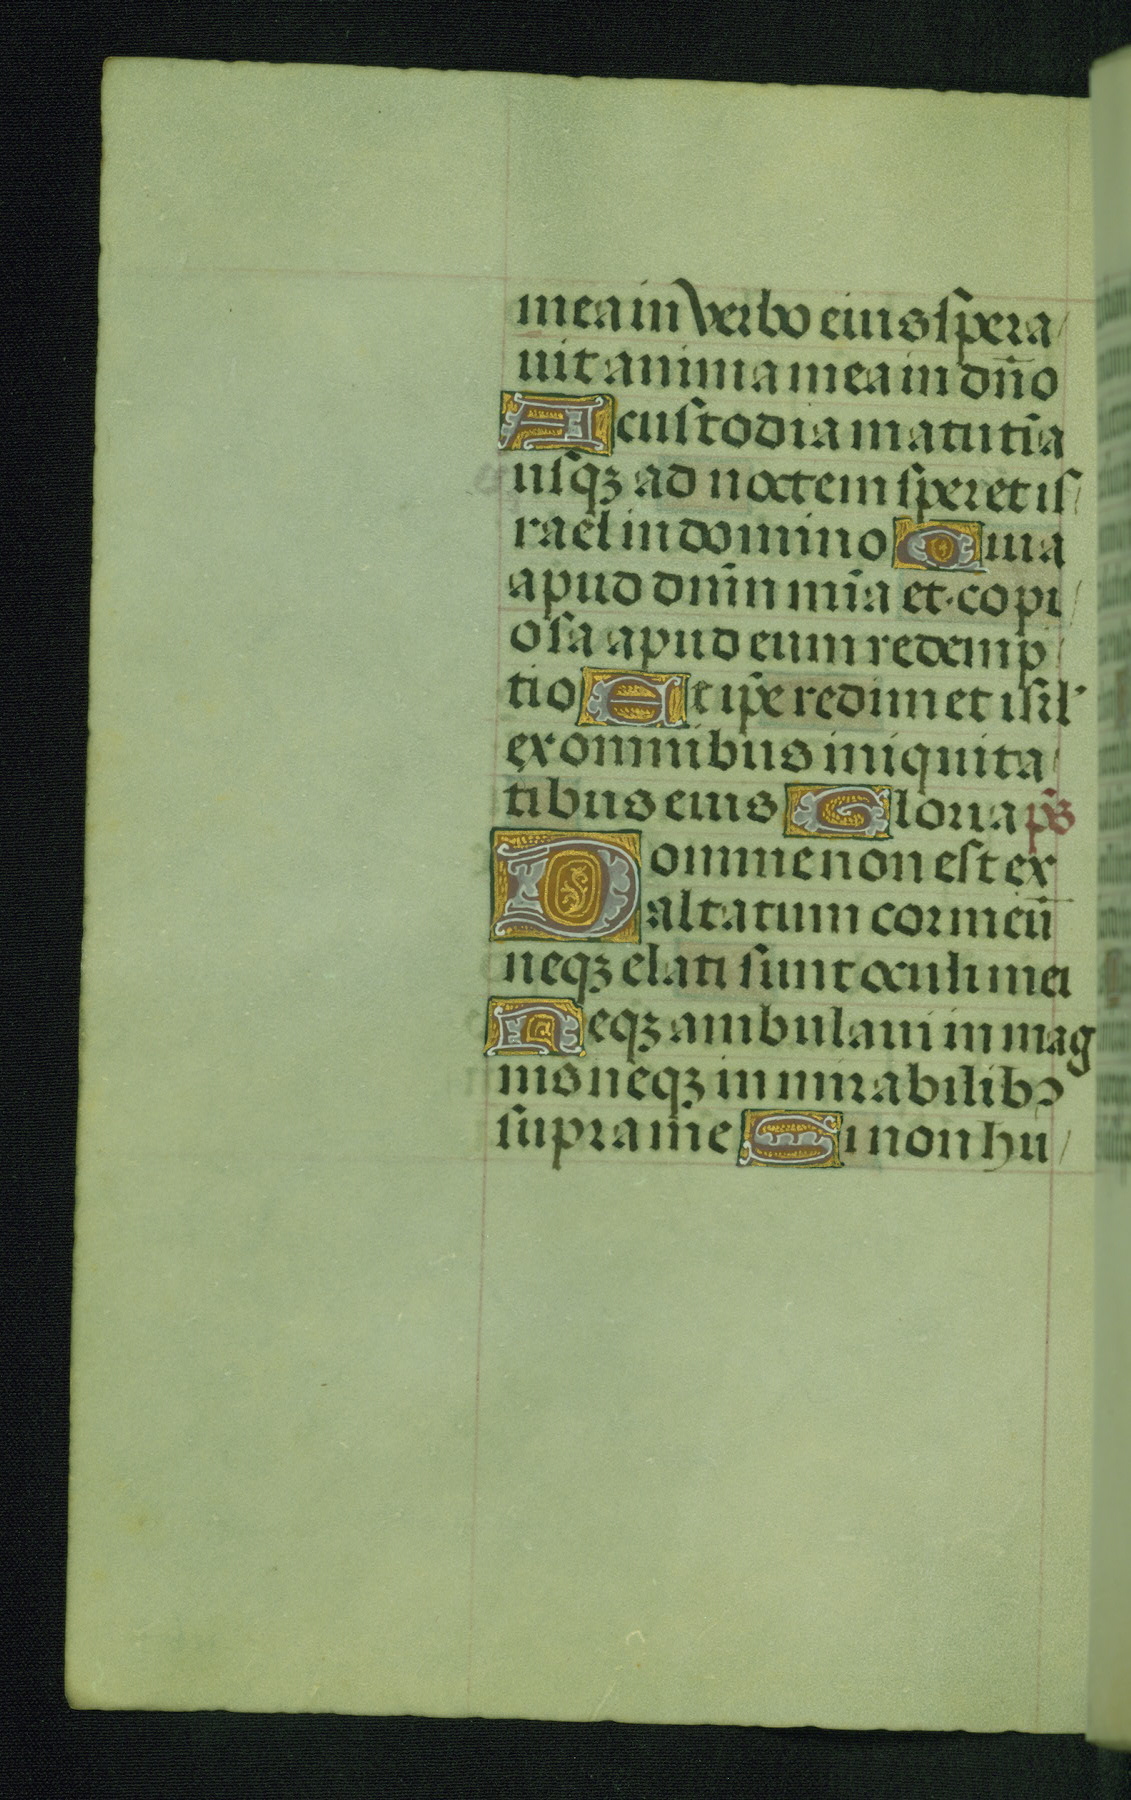 mea in verbo eius spera/
uit anima mea in dn̄o
A custodia matutīa
usqꝫ ad noctem speret is/
rael in domino Quia
apud dn̄m mīa et copi/
osa apud eum redemp/
tio Et ip̄e redimet isrl'
ex omnibus iniquita/
tibus eius Gloria p̄s
Domine non est ex
altatum cor meū
neqꝫ elati sunt oculi mei
Neqꝫ ambulaui in mag
nis neqꝫ in mirabilibꝰ
supra me Si non hu/